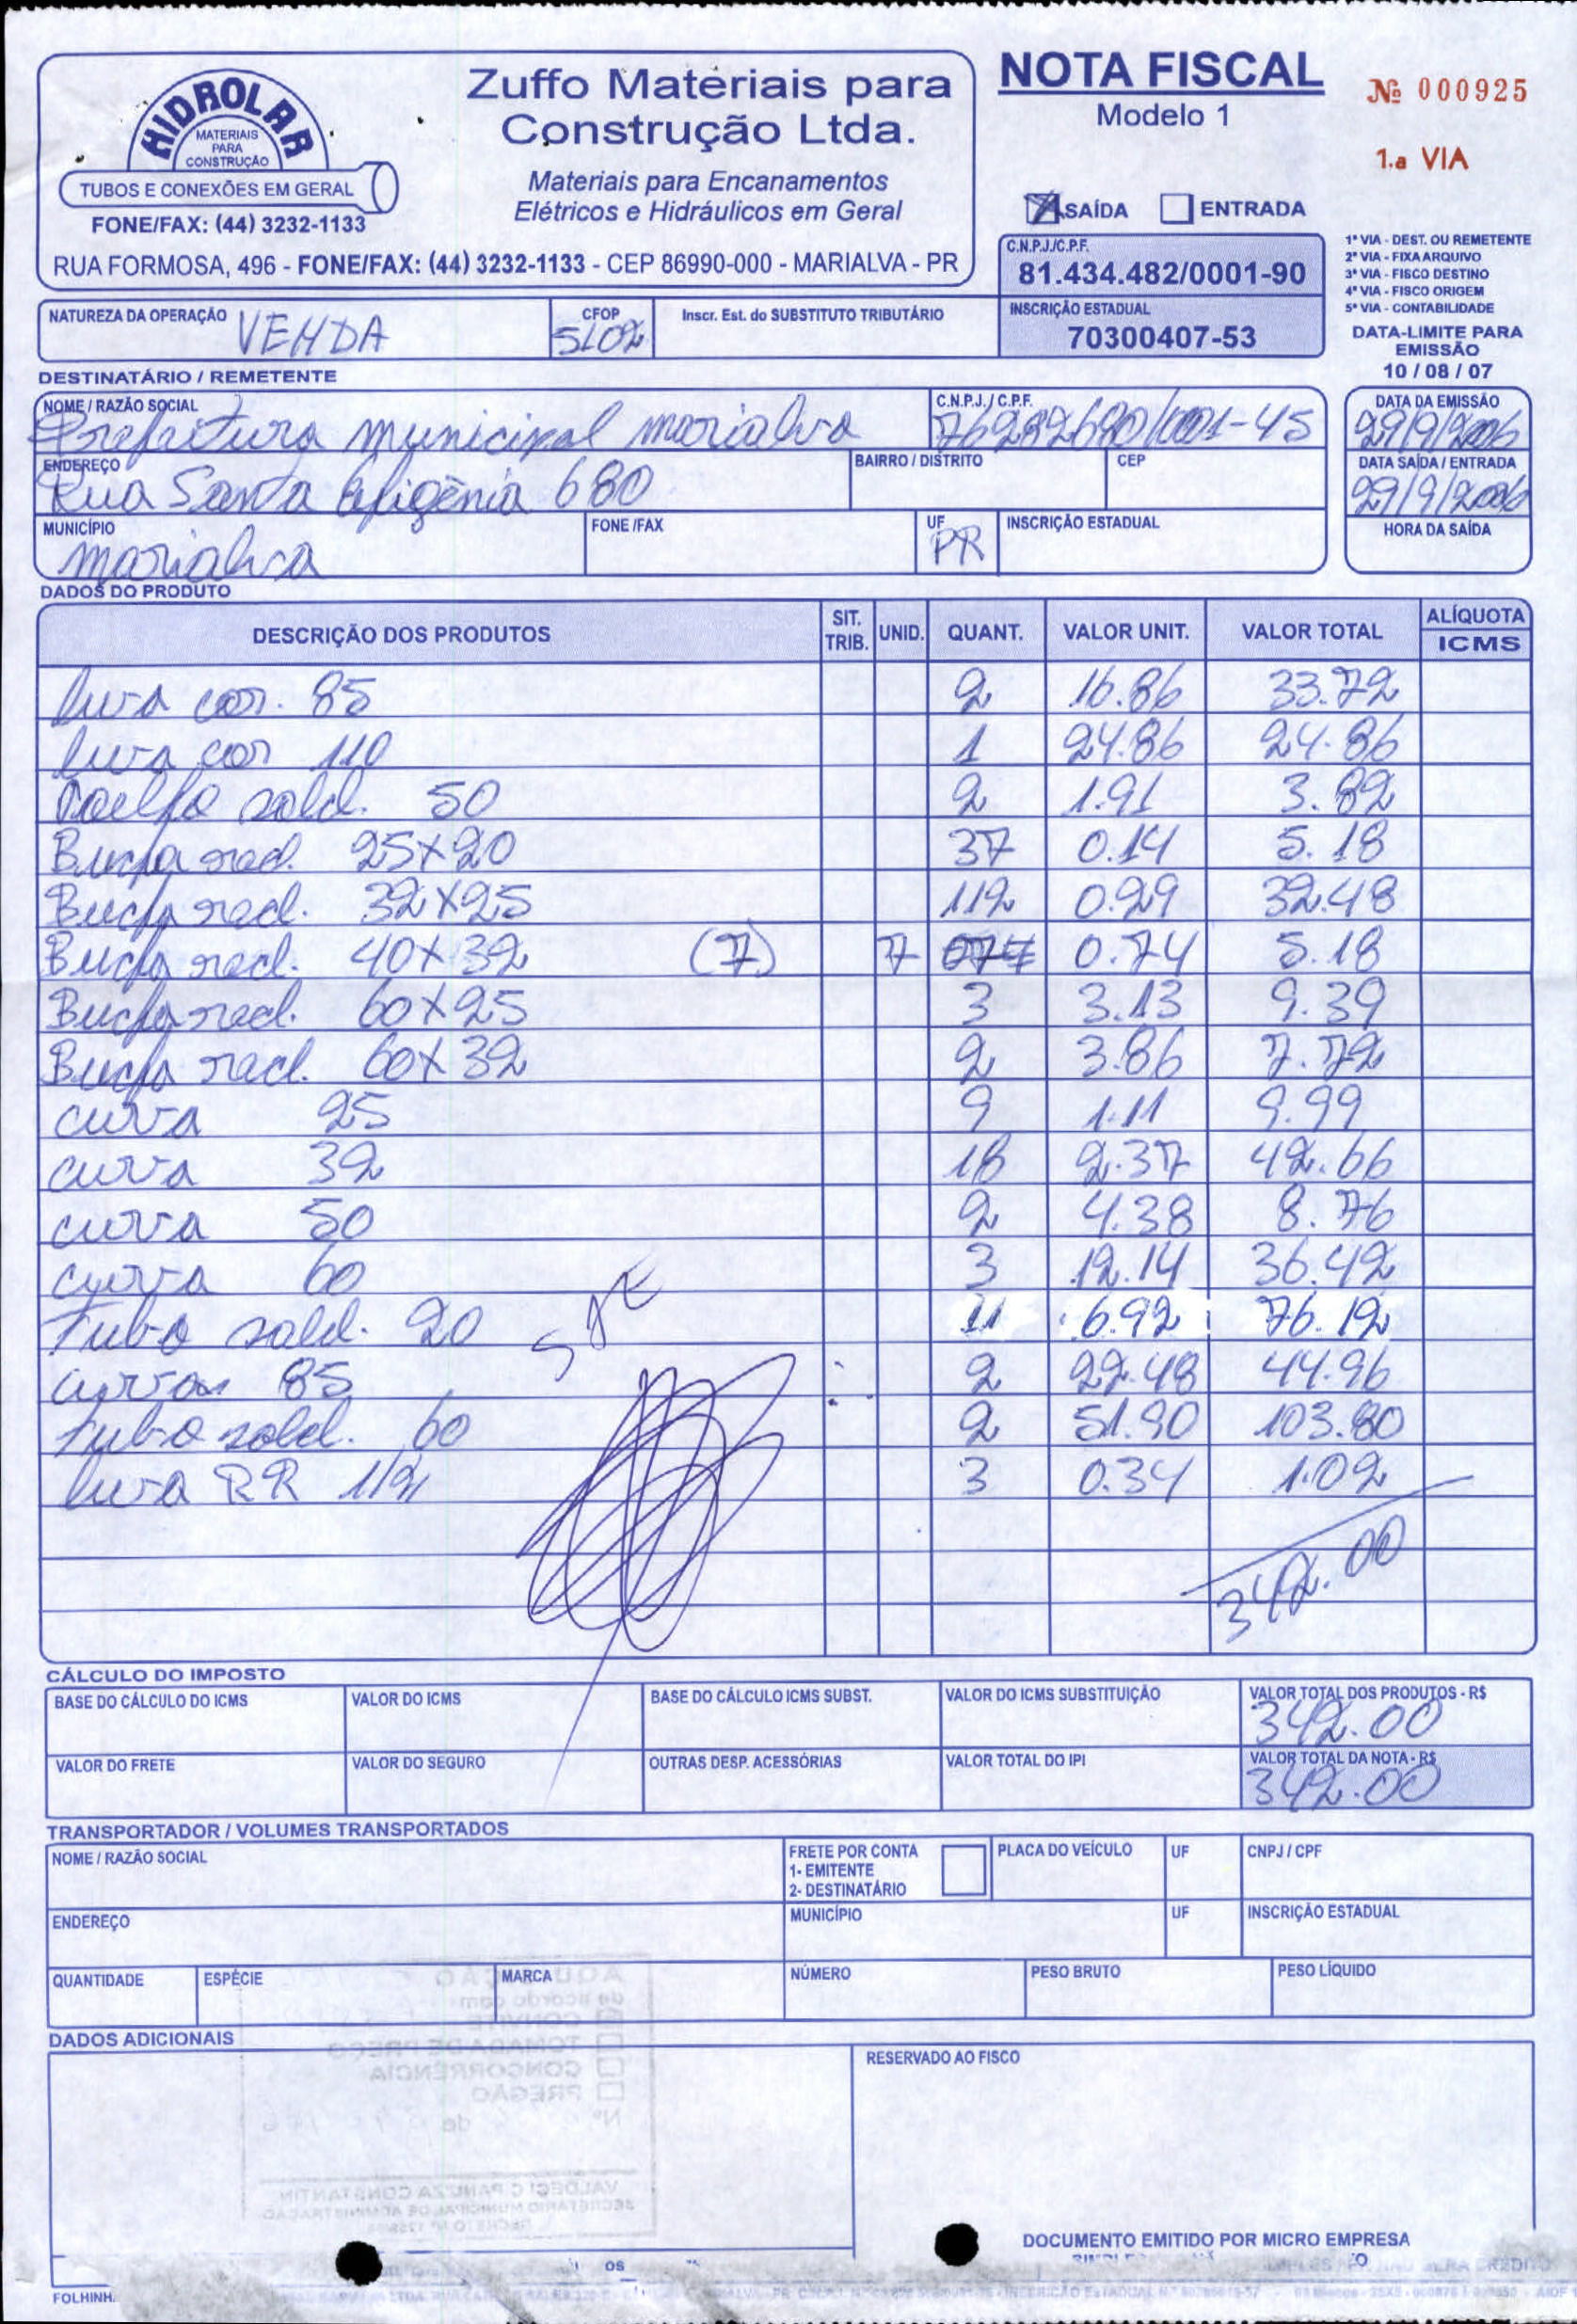 HIDROLAR
MATERIAIS
PARA
CONSTRUÇÃO
TUBOS E CONEXÕES EM GERAL
FONE/FAX: (44) 3232-1133
Zuffo Materiais para
Construção Ltda.
Materiais para Encanamentos
Elétricos e Hidráulicos em Geral
RUA FORMOSA, 496 - FONE/FAX: (44) 3232-1133 - CEP 86990-000 - MARIALVA - PR
NOTA FISCAL
Modelo 1
Nº 000925
1.a VIA
SAÍDA ENTRADA
C.N.P.J./C.P.F.
81.434.482/0001-90
INSCRIÇÃO ESTADUAL
70300407-53
1ª VIA - DEST. OU REMETENTE
2ª VIA - FIXA ARQUIVO
3ª VIA - FISCO DESTINO
4ª VIA - FISCO ORIGEM
5ª VIA - CONTABILIDADE
DATA-LIMITE PARA
EMISSÃO
10 / 08 / 07
NATUREZA DA OPERAÇÃO VENDA CFOP 5102 Inscr. Est. do SUBSTITUTO TRIBUTÁRIO
DESTINATÁRIO / REMETENTE
NOME / RAZÃO SOCIAL C.N.P.J. / C.P.F. DATA DA EMISSÃO
Prefeitura municipal marialva 76282680/0001-45 29/9/2006
ENDEREÇO BAIRRO / DISTRITO CEP DATA SAÍDA / ENTRADA
Rua Santa Efigênia 680 29/9/2006
MUNICÍPIO FONE /FAX UF INSCRIÇÃO ESTADUAL HORA DA SAÍDA
marialva PR
DADOS DO PRODUTO
DESCRIÇÃO DOS PRODUTOS SIT. TRIB. UNID. QUANT. VALOR UNIT. VALOR TOTAL ALÍQUOTA ICMS
luva cor. 85 2 16.86 33.72
luva cor 110 1 24.86 24.86
sold. 50 2 1.91 3.82
Bucha red. 25X20 37 0.14 5.18
Bucha red. 32X25 112 0.29 32.48
Bucha red. 40X32 (7) 7 0.74 5.18
Bucha red. 60X25 3 3.13 9.39
Bucha red. 60X32 2 3.86 7.72
curva 25 9 1.11 9.99
curva 32 18 2.37 42.66
curva 50 2 4.38 8.76
curva 60 3 12.14 36.42
Tubo sold. 20 11 6.92 76.12
curvas 85 2 22.48 44.96
Tubo sold. 60 2 51.90 103.80
luva RR 1/2 3 0.34 1.02
342.00
CÁLCULO DO IMPOSTO
BASE DO CÁLCULO DO ICMS VALOR DO ICMS BASE DO CÁLCULO ICMS SUBST. VALOR DO ICMS SUBSTITUIÇÃO VALOR TOTAL DOS PRODUTOS - R$
342.00
VALOR DO FRETE VALOR DO SEGURO OUTRAS DESP. ACESSÓRIAS VALOR TOTAL DO IPI VALOR TOTAL DA NOTA - R$
342.00
TRANSPORTADOR / VOLUMES TRANSPORTADOS
NOME / RAZÃO SOCIAL FRETE POR CONTA PLACA DO VEÍCULO UF CNPJ / CPF
1- EMITENTE
2- DESTINATÁRIO
ENDEREÇO MUNICÍPIO UF INSCRIÇÃO ESTADUAL
QUANTIDADE ESPÉCIE MARCA NÚMERO PESO BRUTO PESO LÍQUIDO
DADOS ADICIONAIS
RESERVADO AO FISCO
DOCUMENTO EMITIDO POR MICRO EMPRESA
FOLHINH